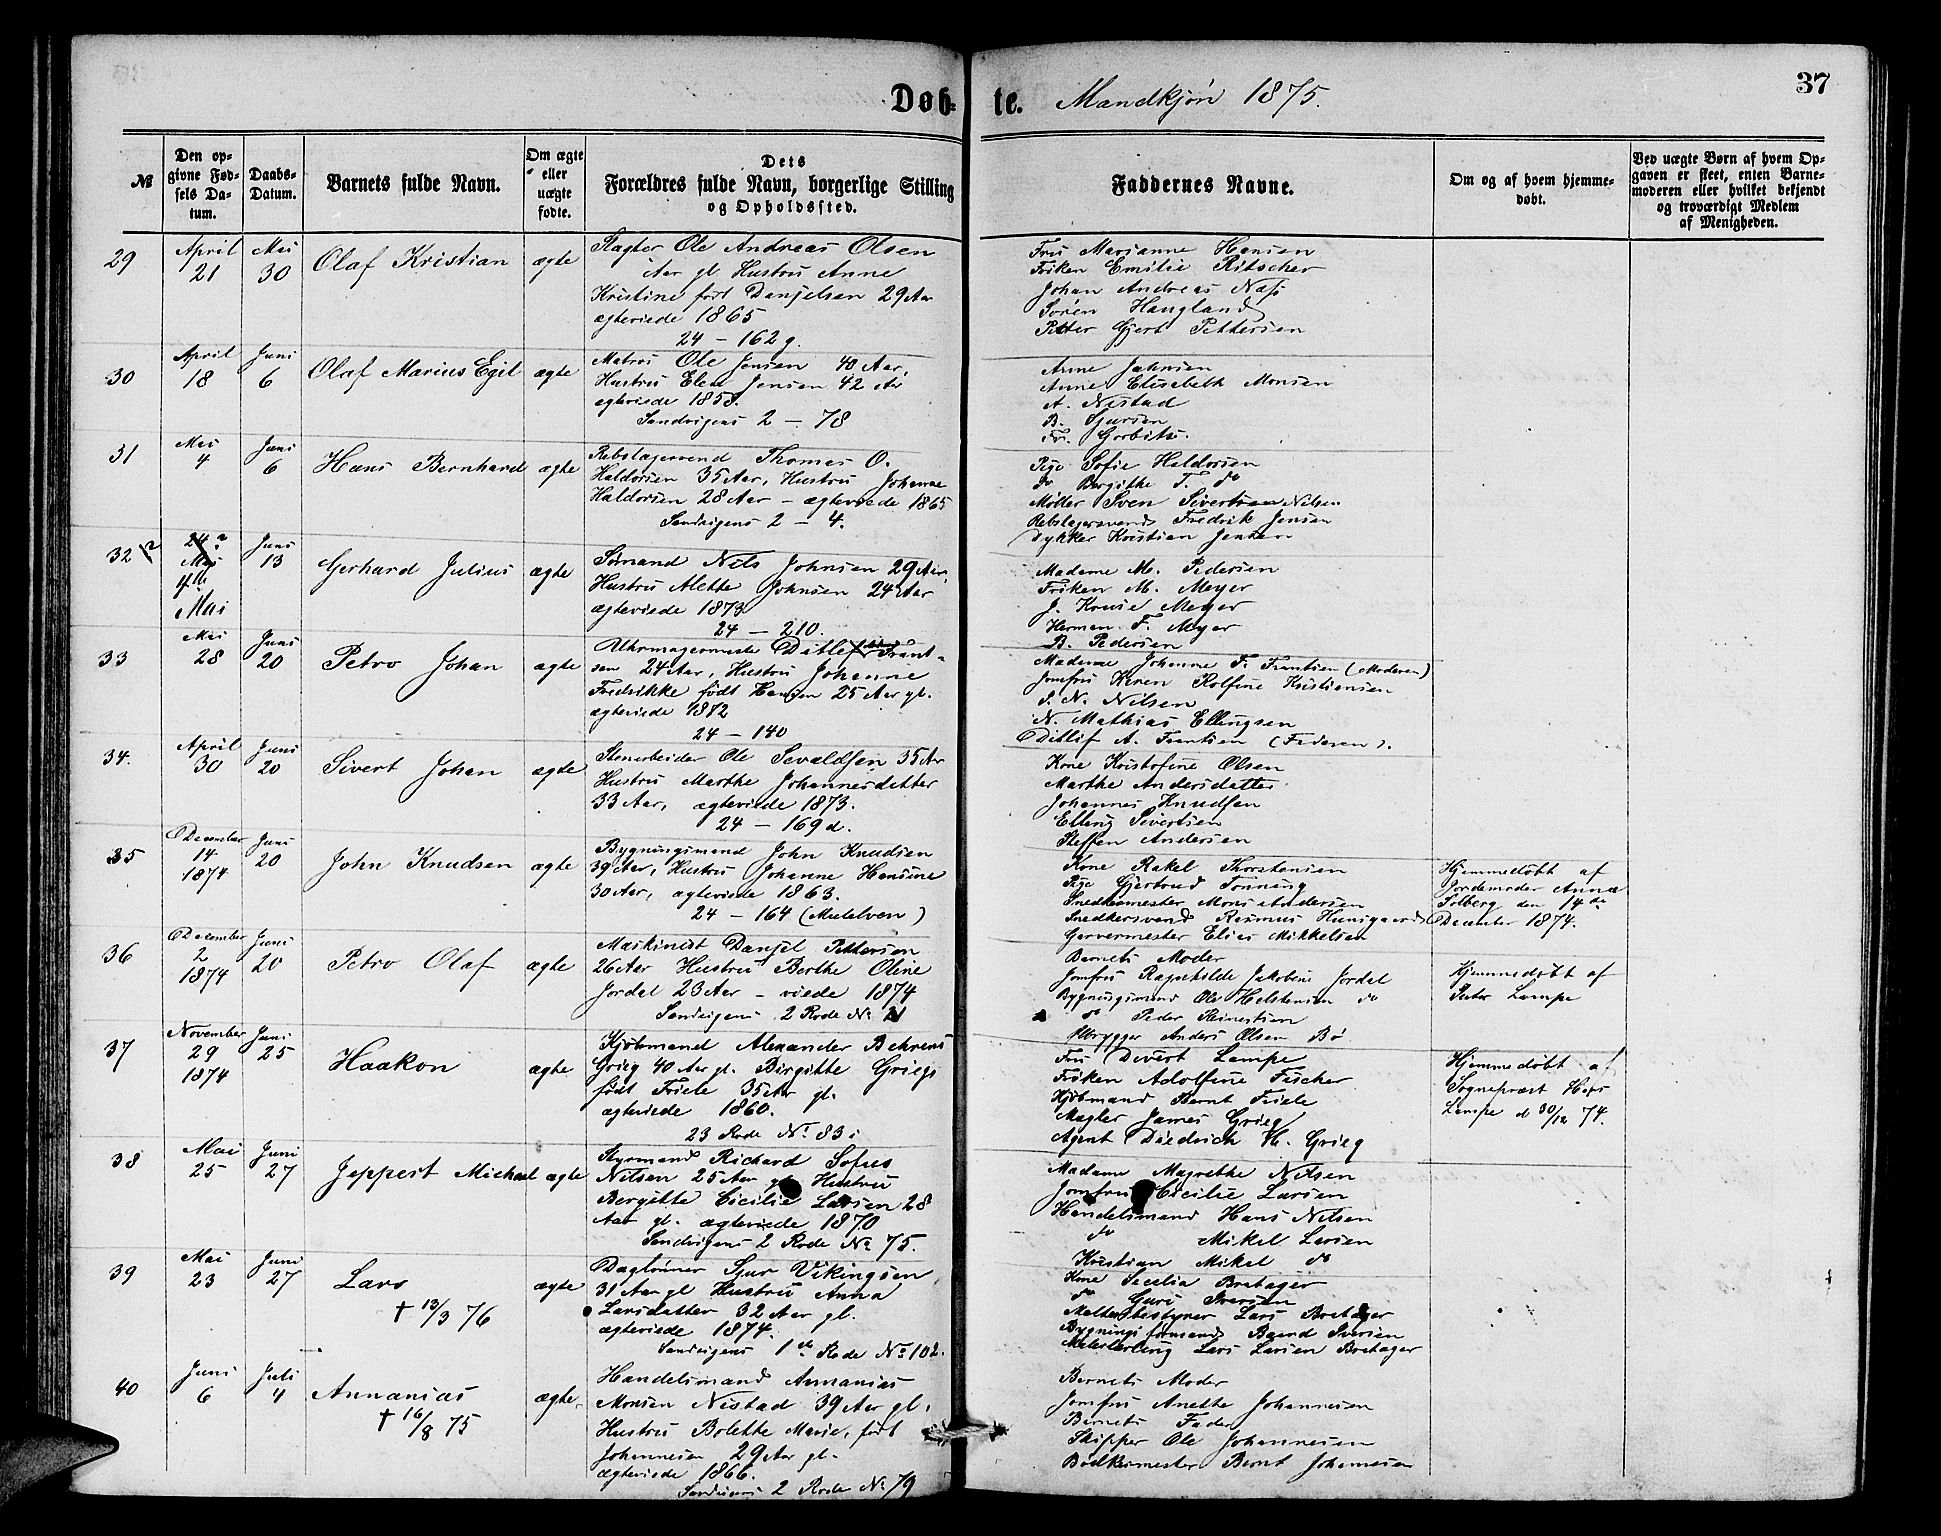 Døb-te. Mandkjøn 1875.
37
№
Den op-
givne Fød-
sels Da-
tum.
Daabs-
Datum.
Barnets fulde Navn.
Om ægte
eller
uægte
fødte.
Dets
Forældres fulde Navn, borgerlige Stilling
og Opholdssted.
Faddernes Navne.
Om og af hvem hjemme-
døbt.
Ved uægte Børn af hvem Op-
gaven er skeet, enten Barne-
moderen eller hvilket bekjendt
og troværdigt Medlem
af Menigheden.
29
April
21
Mai
30
Olaf Kristian
ægte
Slagter Ole Andreas Olsen
Aar gl Hustru Anne
Kristine født Danjelsen 29 Aar
ægteviede 1865
24 - 162 g.
Fru Marianne Hansen
Frøken Emilie Ritscher
Johan Andreas Næss
Søren Haugland
Petter Gjert Pettersen
30
April
18
Juni
6
Olaf Marius Egil
ægte
Matros Ole Jensen 40 Aar,
Hustru Elen Jensen 42 Ar
ægteviede 1858.
Sandvigens 2 - 78
Anne Jahnsen
Anne Elisabeth Monsen
A. Nistad
B. Sjursen
Fr. Gorbitz.
31
Mai
4
Juni
6
Hans Bernhard
ægte
Rebslagersvend Thomas O.
Haldorsen 35 Aar, Hustru Johanne
Haldorsen 28 Aar - ægteviede 1865
Sandvigens 2 - 4.
Pige Sofie Haldorsen
do Bergithe T. do
Møller Sven Sivertsen Nilsen
Rebslagersvend Fredrik Jensen
Dykker Kristian Jensen
32
24 ?
Mai
4de
Mai
Juni
13
Gerhard Julius
ægte
Sømand Nils Johnsen 29 Aar,
Hustru Alette Johnsen 24 Aar
ægteviede 1873
24 - 210.
Madame M. Pedersen
Frøken M. Meyer
J. Kruse Meyer
Herman F. Meyer
B. Pedersen
33
Mai
28
Juni
20
Petro Johan
ægte
Uhrmagermeste Ditlef Frant-
sen 24 Aar, Hustru Johanne
Fredrikke født Hansen 25 Aar gl.
ægteviede 1872
24 - 140
Madame Johanne F. Frantsen (Moderen)
Jomfru Karen Rolfine Kristiansen
S. N. Nilsen
N. Mathias Ellingsen
Ditlif A. Frantsen (Faderen).
34.
April
30
Juni
20
Sivert Johan
ægte
Stenarbeider Ole Sevaldsen 35 Ar
Hustru Marthe Johannesdatter
33 Aar, ægteviede 1873.
24 - 169 d.
Kone Kristofine Olsen
Marthe Andersdatter
Johannes Knudsen
Elling Sivertsen
Steffen Andersen
35
December
14
1874
Juni
20
John Knudsen
ægte
Bygningsmand John Knudsen
39 Aar, Hustru Johanne Hansine
30 Aar, ægteviede 1863.
24 - 164 (Møllelven)
Kone Rakel Thorstensen
Pige Gjertrud Tønning
Snedkermester Mons Andersen
Snedkersvend Rasmus Hunsgaard
Garvermester Elias Mikkelsen
Hjemmedøbt af
Jordemoder Anna
Solberg den 14de
December 1874.
36
December
2
1874
Juni
20
Petro Olaf
ægte
Maskinist Danjel Pettersen
26 Aar Hustru Berthe Oline
Jordal 23 Aar - viede 1874
Sandvigens 2 Rode No 21
Barnets Moder
Jomfru Ragnhilde Jakobine Jordal
Bygningsmand Ole Helstensen do
do Peder Steinestien
Ølbrygger Anders Olsen Bø
Hjemmedøbt af
Peter Lampe
37
November
29
1874
Juni
25
Haakon
ægte
Kjøbmand Alexander Behrens
Grieg 40 Aar gl. Birgitte Griegs
født Friele 35 Ar gl.
ægteviede 1860.
23 Rode No 83 i
Fru Divert Lampe
Frøken Adolfine Fischer
Kjøbmand Bernt Friele
Mægler James Grieg
Agent Diedrich M. Grieg
Hjemmedøbt af
Sogneprest Hars
Lampe d 30/12 74.
38
Mai
25
Juni
27
Jeppert Michael
ægte
Styrmand Richard Sofus
Nilsen 25 Aar gl Hustru
Bergitte Cicilie Larsen 28
Aar gl. ægteviede 1870
Sandvigens 2 Rode No 75.
Madame Magrethe Nilsen
Jomfru Cicilie Larsen
Handelsmand Hans Nilsen
do Mikel Larsen
Kristian Mikel do
39
Mai
23
Juni
27
Lars
† 13/3 76
ægte
Daglønner Sjur Vikingsen,
31 Aar gl Hustru Anna
Larsdatter 32 Aar gl.
ægteviede 1874.
Sandvigens 1ste Rode No 102.
Kone Secilia Bretager
do Guri Iversen
Lars Bretager
Bygnings formand Baard Iversen
Malerlærling Lars Larsen Bretager
40
Juni
6
Juli
4
Annanias
† 16/8 75
ægte.
Handelsmand Annanias
Monsen Nistad 39 Aar gl.
Hustru Bolette Marie, født
Johannesen 29 Ar gl.
ægteviede 1866.
Sandvigens 2 Rode No 79
Barnets Moder
Jomfru Anette Johannesen
Barnets Fader
Skipper Ole Johannesen
Bødkermester Bernt Johannesen